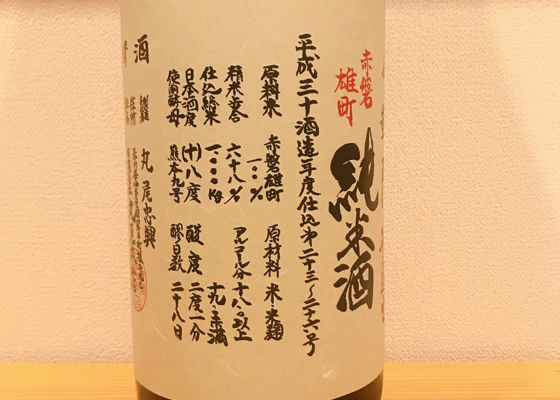 赤磐
雄町
純米酒
平成三十酒造年度仕込第二十三〜二十六号
原料米 赤磐雄町
一〇〇%
原材料 米・米麹
精米歩合 六十八%
アルコール分 十八・〇以上
十九・〇未満
仕込総米 一〇〇〇kg
日本酒度 (+)八度
酸度 二度一分
使用酵母 熊本九号
醪日数 二十八日
酒
丸尾忠興